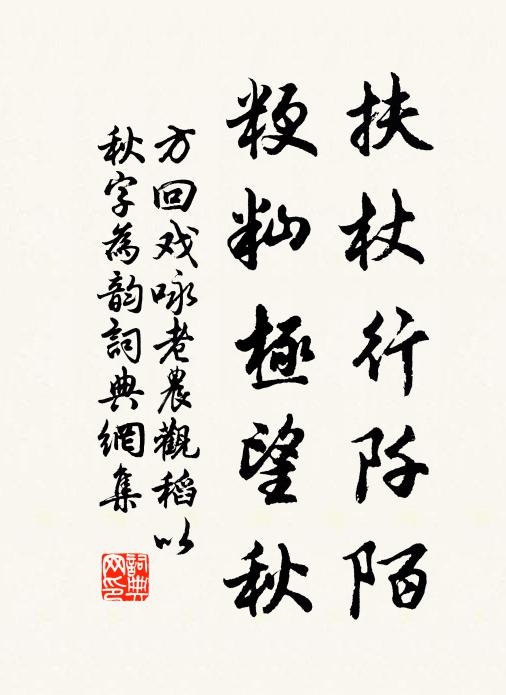 扶杖行阡陌
粳籼極望秋
方回戏咏老農觀稻以
秋字為韵詞典網集
詞典網印